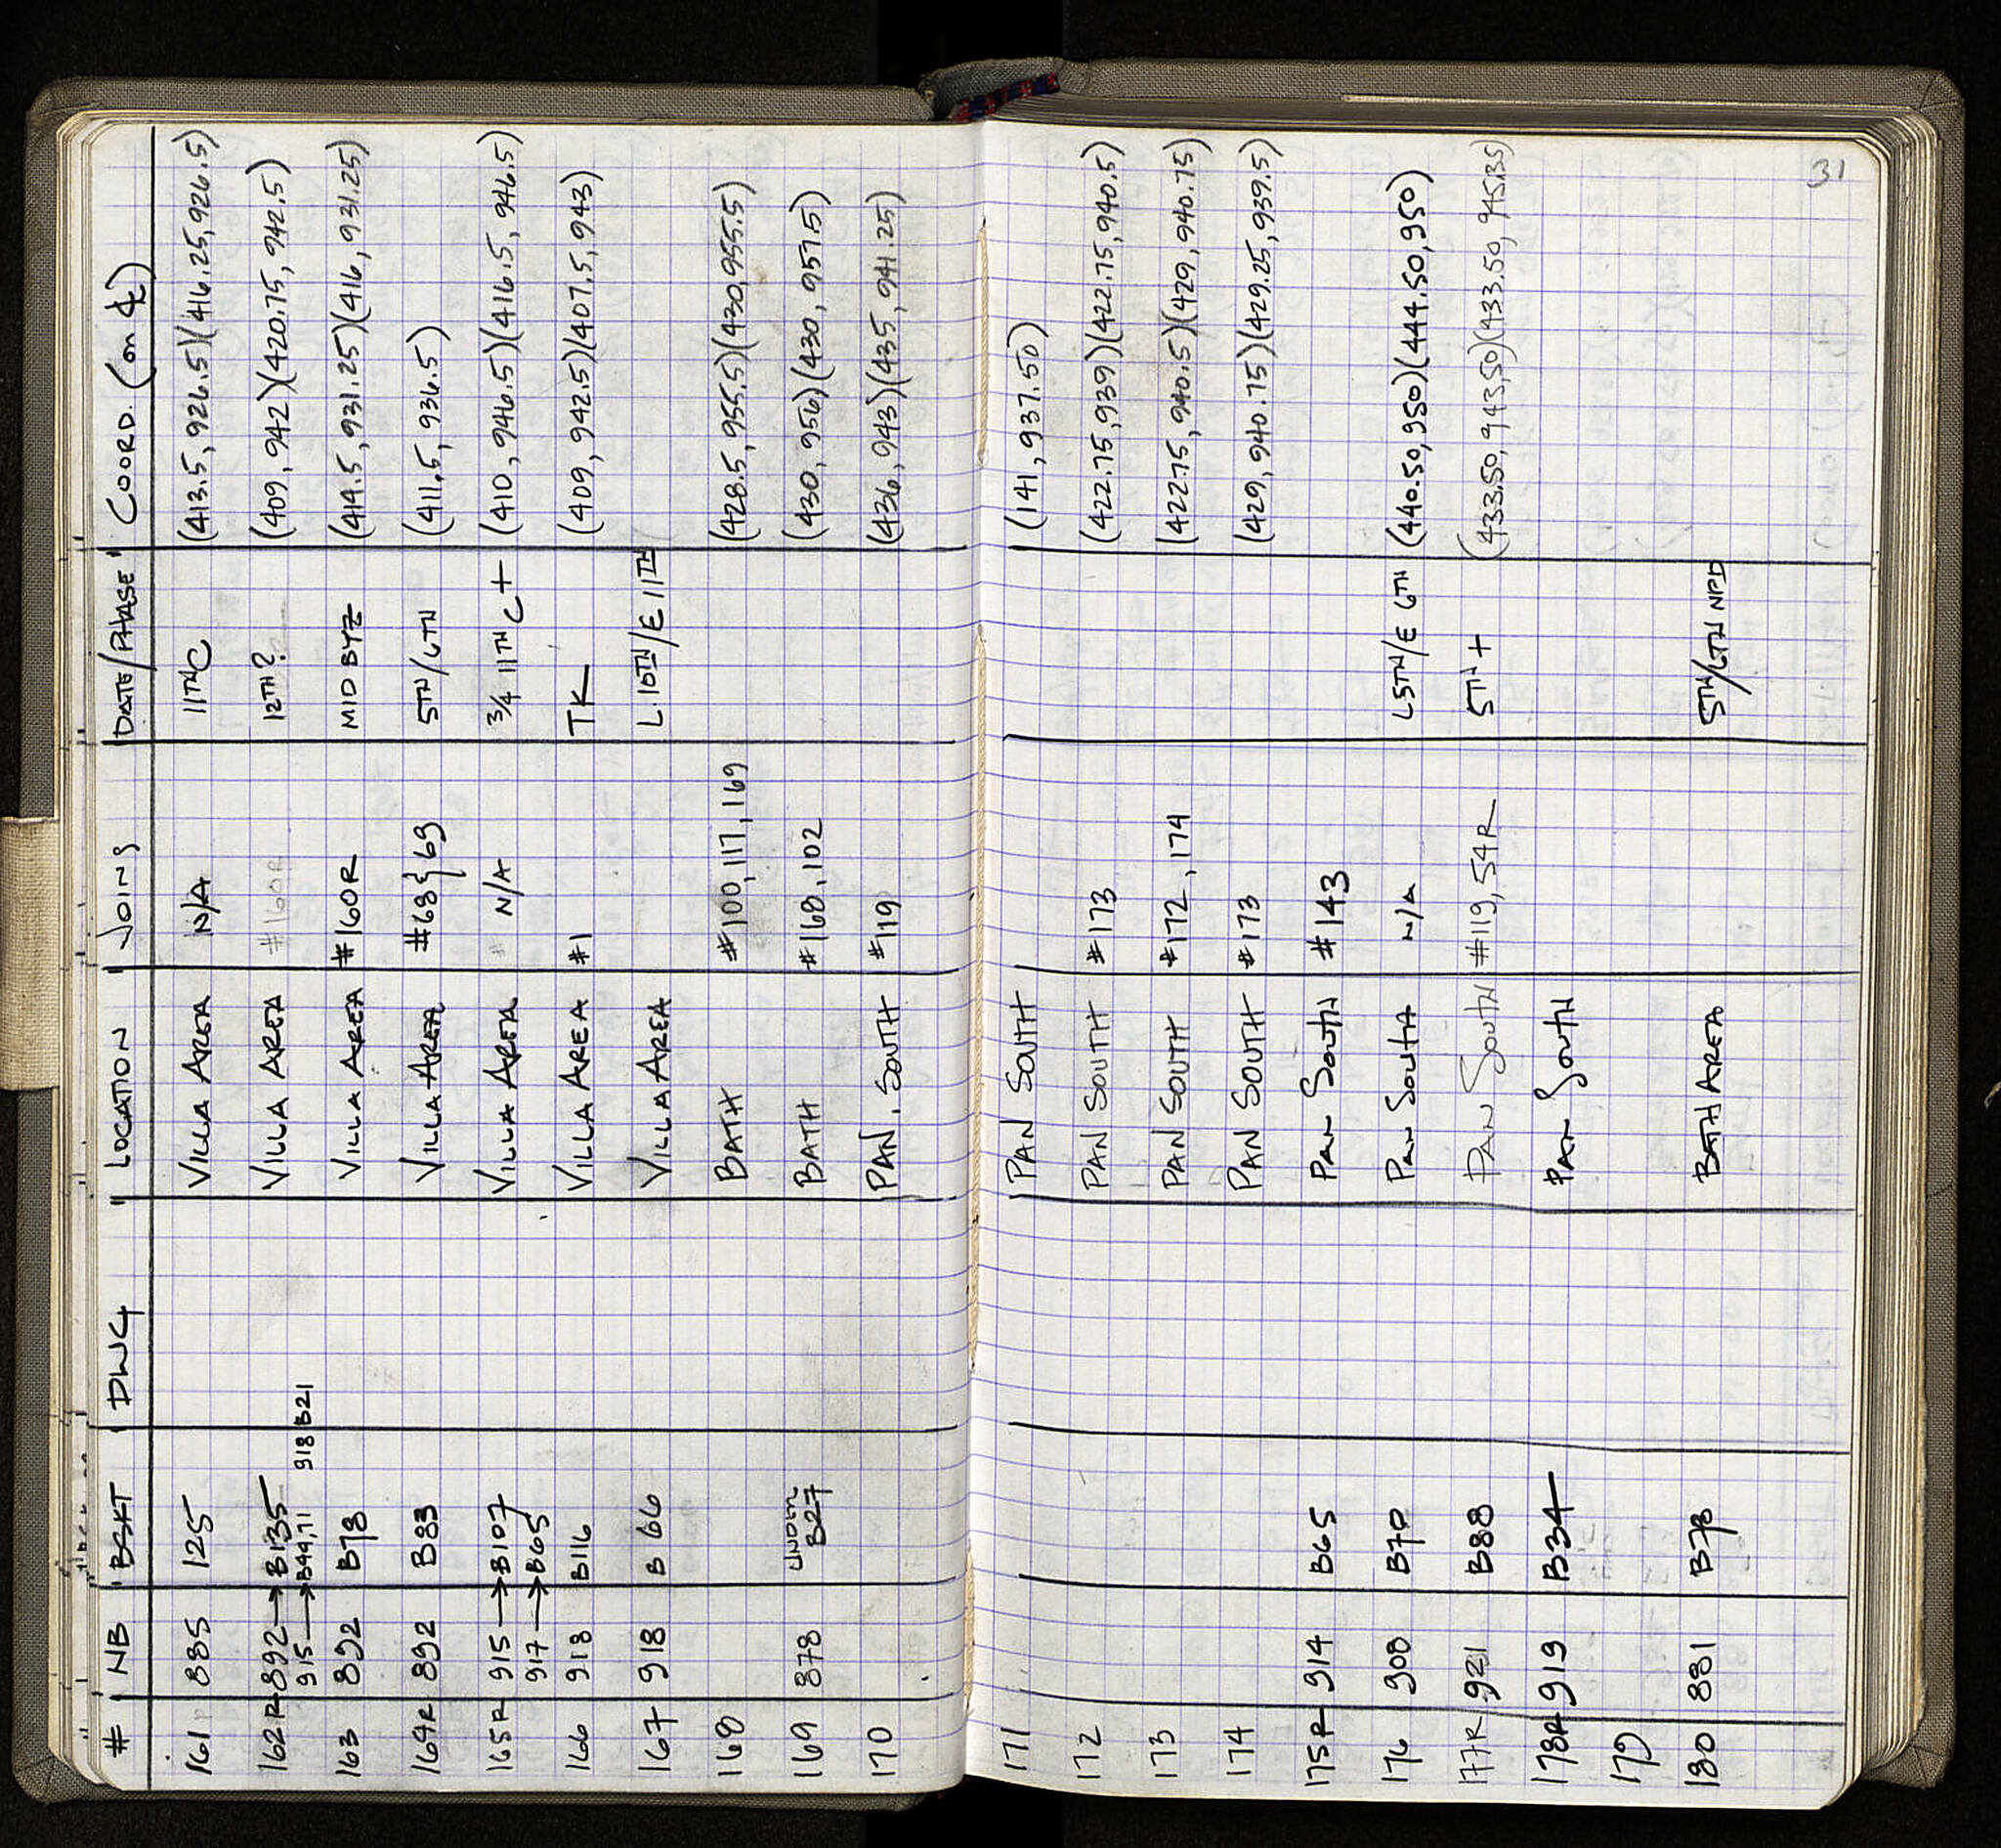 # NB BSKT DWG LOCATION JOINS DATE/PHASE COORD. (on ℄)
161 885 125 VILLA AREA N/A 11TH C (413.5, 926.5)(416.25, 926.5)
162R 892→B135 VILLA AREA #160R 12TH? (409, 942)(420.75, 942.5)
915→B44,71 918 B21
163 892 B78 VILLA AREA #160R MID BYZ (414.5, 931.25)(416, 931.25)
164R 892 B83 VILLA AREA #68 } 69 5TH/6TH (411.5, 936.5)
165R 915→B107 VILLA AREA N/A 3/4 11TH C+ (410, 946.5)(416.5, 946.5)
917→B65
166 918 B116 VILLA AREA #1 TK (409, 942.5)(407.5, 943)
167 918 B 66 VILLA AREA L.10TH/E 11TH
168 BATH #100, 117, 169 (428.5, 955.5)(430, 955.5)
169 878 UNDER B27 BATH #168, 102 (430, 956)(430, 957.5)
170 PAN. SOUTH #119 (436, 943)(435, 941.25)
31
171 PAN SOUTH (141, 937.50)
172 PAN SOUTH #173 (422.75, 939)(422.75, 940.5)
173 PAN SOUTH #172, 174 (422.75, 940.5)(429, 940.75)
174 PAN SOUTH #173 (429, 940.75)(429.25, 939.5)
175R 914 B65 PAN SOUTH #143
176 900 B70 PAN SOUTH N/A L5TH/E 6TH (440.50, 950)(444.50, 950)
177R 921 B88 PAN SOUTH #119, 54R 5TH + (433.50, 943.50)(433.50, 945.35)
178R 919 B34 PAN SOUTH
179
180 881 B78 BATH AREA 5TH/6TH NPD